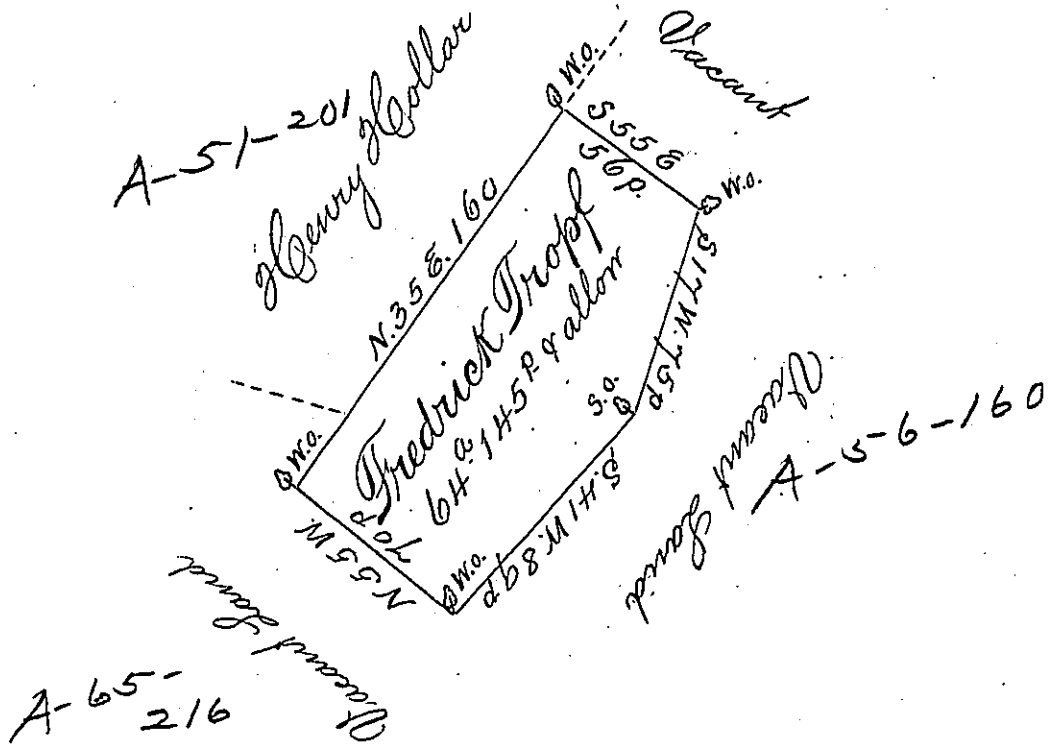 A-51-201
Henry Hollar
W.O.
Vacant
S 55 E
56 P.
W.O.
N. 35 E. 160
Fredrick Tropf
64 a. 145 P. & allow
S 17 W. 75 P
S.O.
Vacant Land
A-56-160
W.O.
N 55 W
70 P
W.O.
S. 41 W. 89 P
Vacant Land
A-65-
216